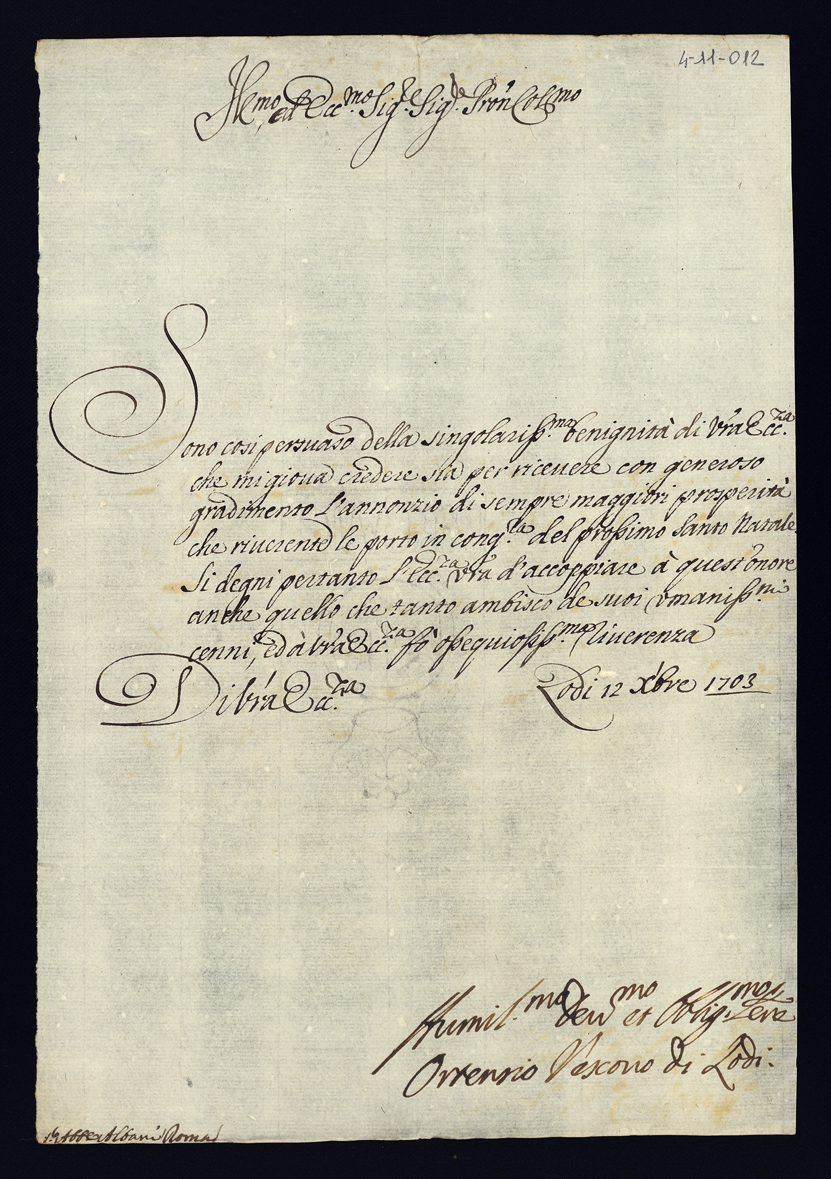 4-11-012
Ill.mo, ed Ecc.mo Sig.re Sig.re Prōn Col.mo
Sono così persuaso della singolariss.ma benignità di Vr̃a Ecc.za
che mi giova credere sia per ricevere con generoso
gradimento l'annonzio di sempre maggiori prosperità
che riverente le porto in cong.ra del prossimo Santo Natale
Si degni pertanto l'Ecc.za Vr̃a d'accoppiare à quest'onore
anche quello che tanto ambisco de suoi Umaniss.mi
cenni, ed à Vr̃a Ecc.za fò ossequiosiss.ma riverenza
Di Vr̃a Ecc.za
Lodi 12 Xbre 1703
Humil.mo Dev.mo et Oblig.mo Serv.re
Ortensio Vescovo di Lodi.
Abbe Albani Roma